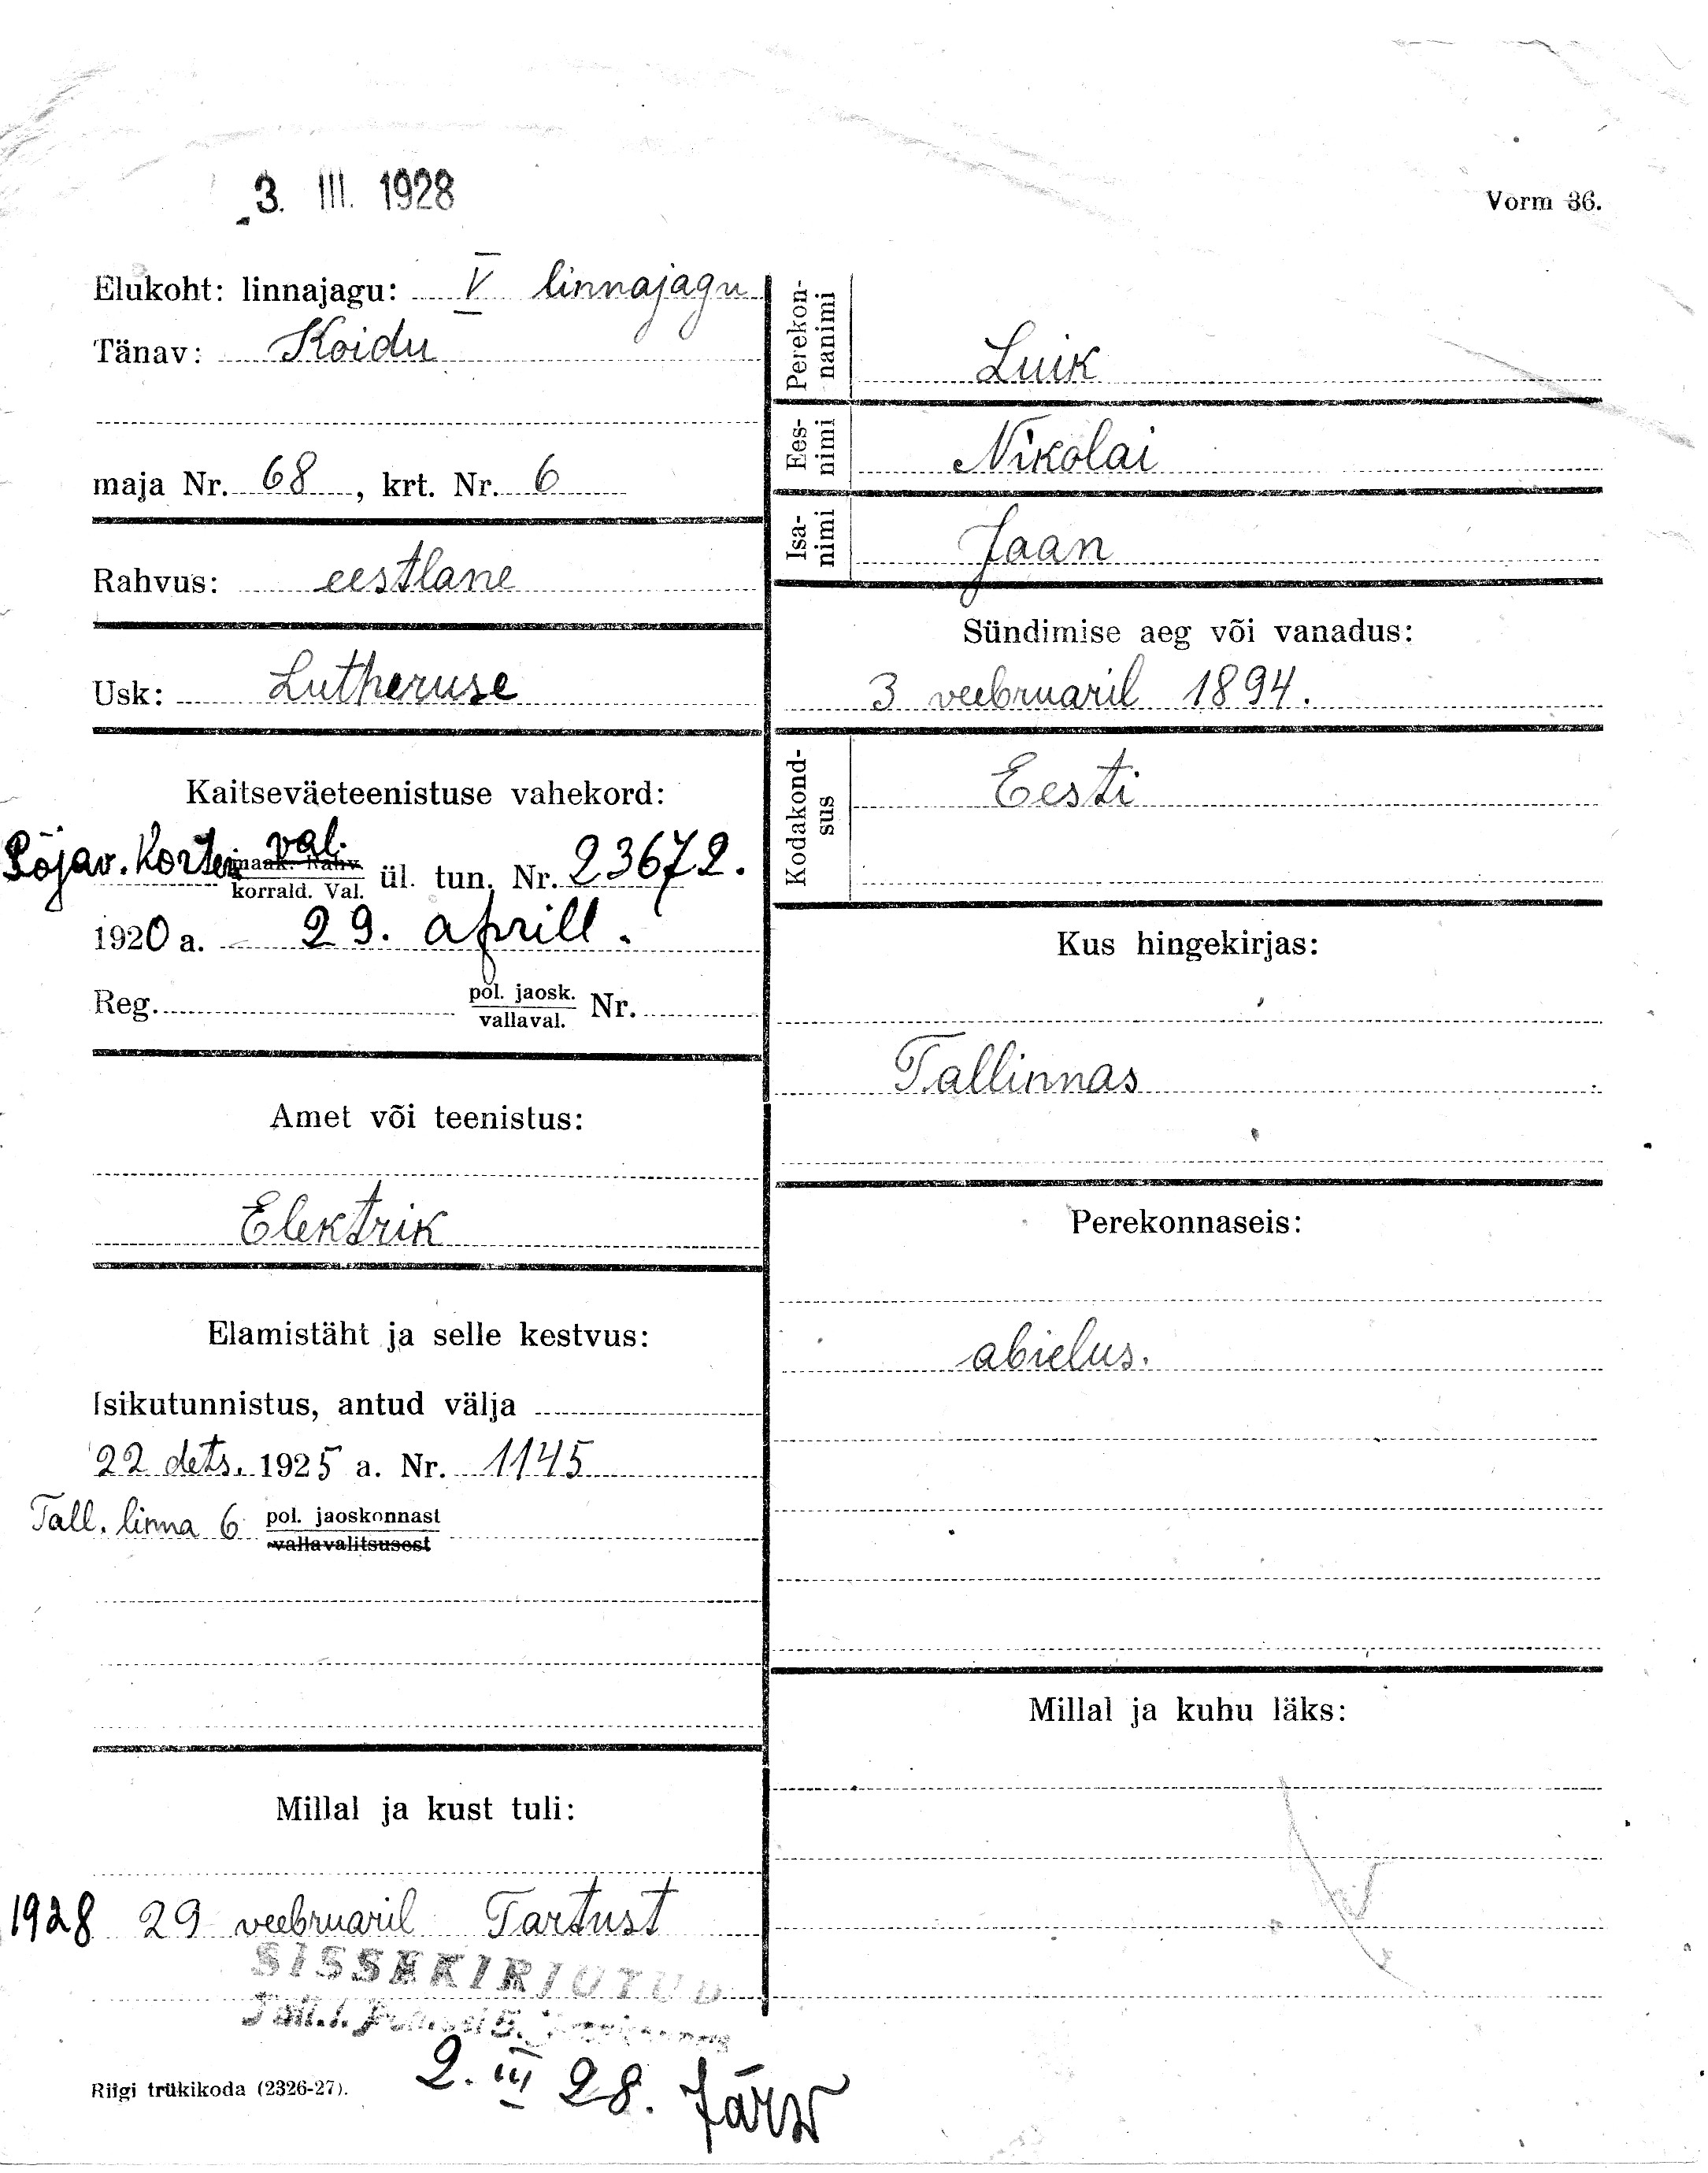 3. III. 1928
Vorm 36.
Elukoht: linnajagu: V linnajagu
Tänav: Koidu
maja Nr. 68, krt. Nr. 6
Rahvus: eestlane
Usk: Lutheruse
Kaitseväeteenistuse vahekord:
val.
maak. Rahv.
korrald. Val. ül. tun. Nr. 23672.
1920 a. 29. aprill.
Reg. pol. jaosk. Nr.
vallaval.
Amet või teenistus:
Elektrik
Elamistäht ja selle kestvus:
Isikutunnistus, antud välja
22 dets. 1925 a. Nr. 1145
Tall. linna 6 pol. jaoskonnast
vallavalitsusest
Millal ja kust tuli:
1928 29 veebruaril Tartust
SISSEKIRJUTUD
2. III 28. Järw
Riigi trükikoda (2326-27).
Perekon-
nanimi
Luik
Ees-
nimi
Nikolai
Isa-
nimi
Jaan
Sündimise aeg või vanadus:
3 veebruaril 1894.
Kodakond-
sus
Eesti
Kus hingekirjas:
Tallinnas
Perekonnaseis:
abielus.
Millal ja kuhu läks: